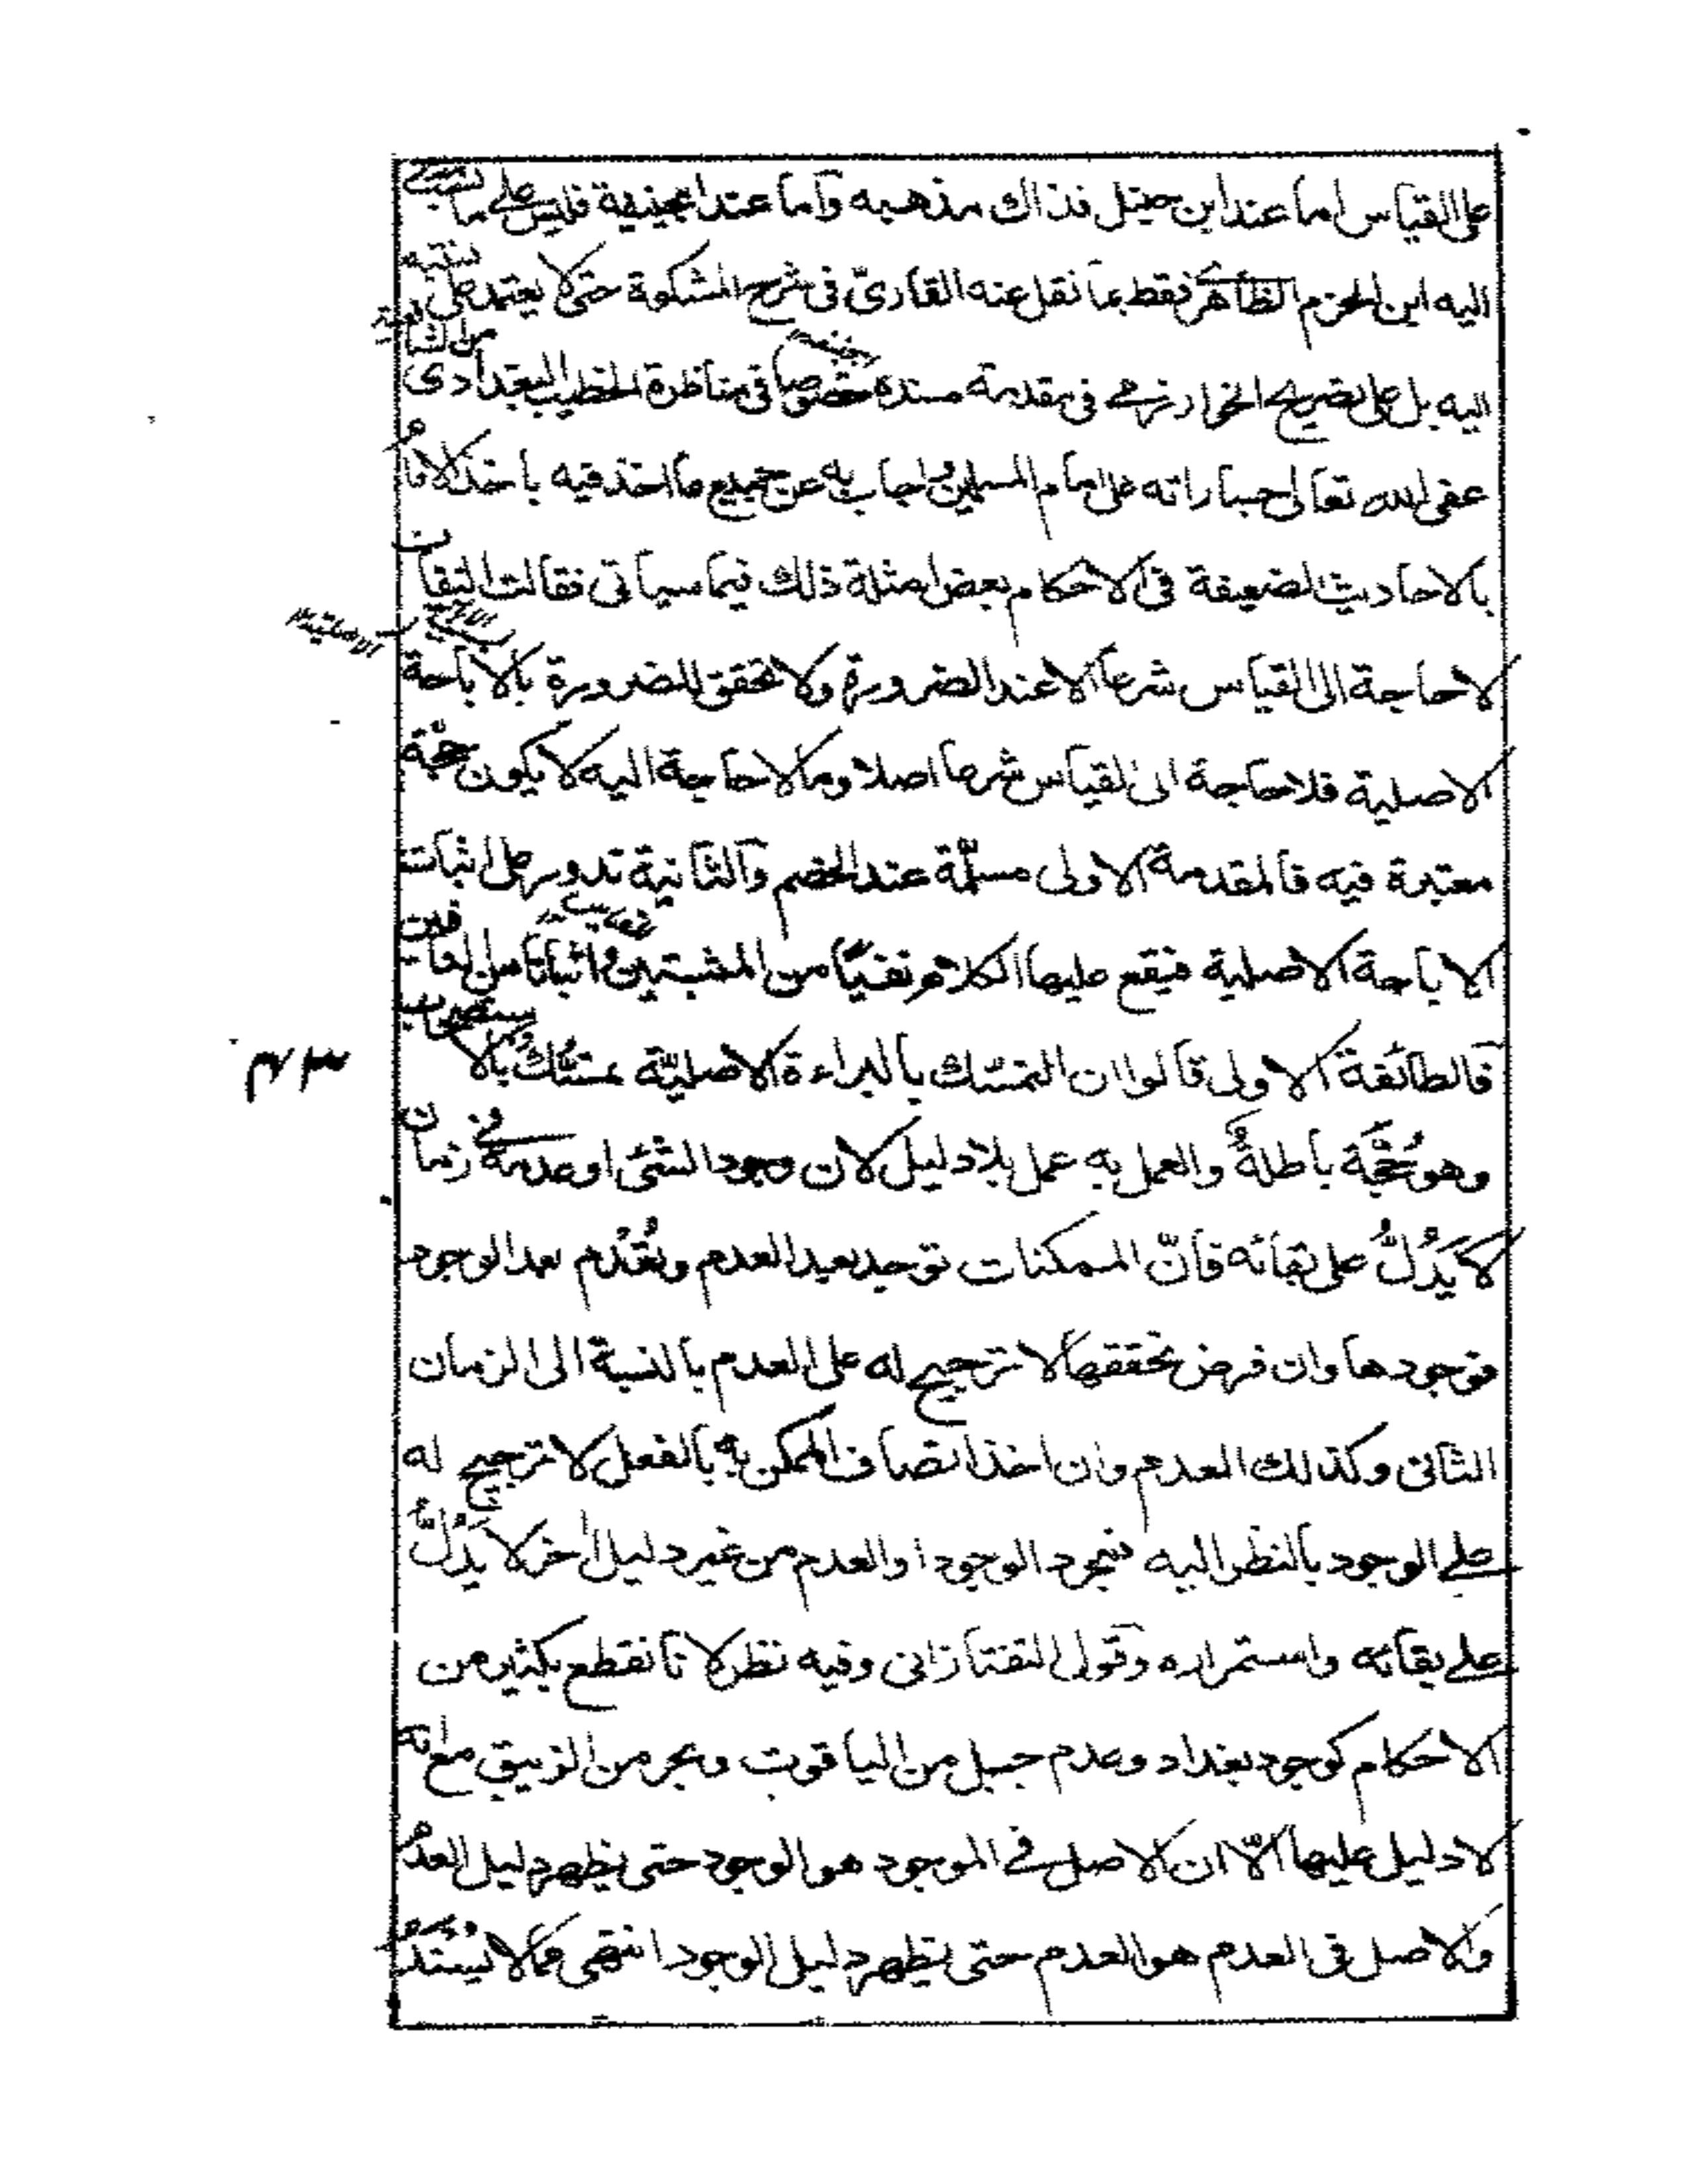 على القياس اما عند ابن حنبل فذاك مذهبه وآما عند ابيحنيفة فليس على ما نسب
اليه ابن الحزم الظاهرى فقط بما نقل عنه القارىّ فى شرح المشكوة حتى لا يعتمد على نسبته
اليه بل على تصريح الخوارزمى فى مقدمة مسنده خصوصا فى مناظرة الخطيب البغدادى
عفى الله تعالى جساراته على امام المسلمين واجاب به عن جميع ما اخذ فيه باخذ الامامُ
بالاحاديث الضعيفة فى الاحكام بعض امثلة ذلك فيما سياتى فقالت النفاة
لاحاجة الى القياس شرعا الا عند الضرورة ولا تحقق للضرورة بالاباحة
الاصلية فلا حاجة الى القياس شرعا اصلا وما لاحاجة اليه لا يكون حجّة
معتبرة فيه فالمقدمة الاولى مسلّمة عند الخصم وآلثانية تدور على اثبات
الاباحة الاصلية فيقع عليها الكلام نفيًا من المثبتين واثباتا من النافين
فَالطائفة الاولى قالوا ان التمسّك بالبراءة الاصليّة تمسّكٌ بالاستصحاب
وهو حُجَّة باطلةٌ والعمل به عمل بلا دليل لان وجود الشئ او عدمه فى زمان
لا يَدُلُّ على بقائه فانّ الممكنات توجد بعيد العدم وتُعْدم بعد الوجود
فوجودها وان فرض تحققها لا ترجيح له على العدم بالنسبة الى الزمان
الثانى وكذلك العدم وان اخذ اتصاف الممكن به بالفعل لا ترجيح له
على الوجود بالنظر اليه فمجرد الوجود او العدم من غير دليل اخر لا يَدُلُّ
على بقائه واستمراره وقول التفتازانى وفيه نظر لانا نقطع بكثير من
الاحكام كوجود بغداد وعدم جبل من الياقوت وبحر من الزيبق مع انه
لا دليل عليها الّا ان الاصل فى الموجود هو الوجود حتى يظهر دليل العدم
والاصل فى العدم هو العدم حتى يظهر دليل الوجود انتهى مما لا يُعْتَدُّ